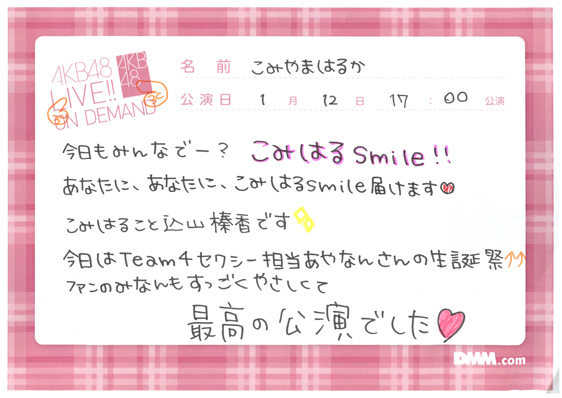 AKB48
LIVE!!
ON DEMAND
AKB
48
名前 こみやまはるか
公演日 1月12日 17:00公演
今日もみんなでー? こみはるsmile!!
あなたに、あなたに、こみはるsmile届けます
こみはること込山榛香です
今日はTeam4セクシー担当あやなんさんの生誕祭↑↑
ファンのみなんもすっごくやさしくて
最高の公演でした
DMM.com